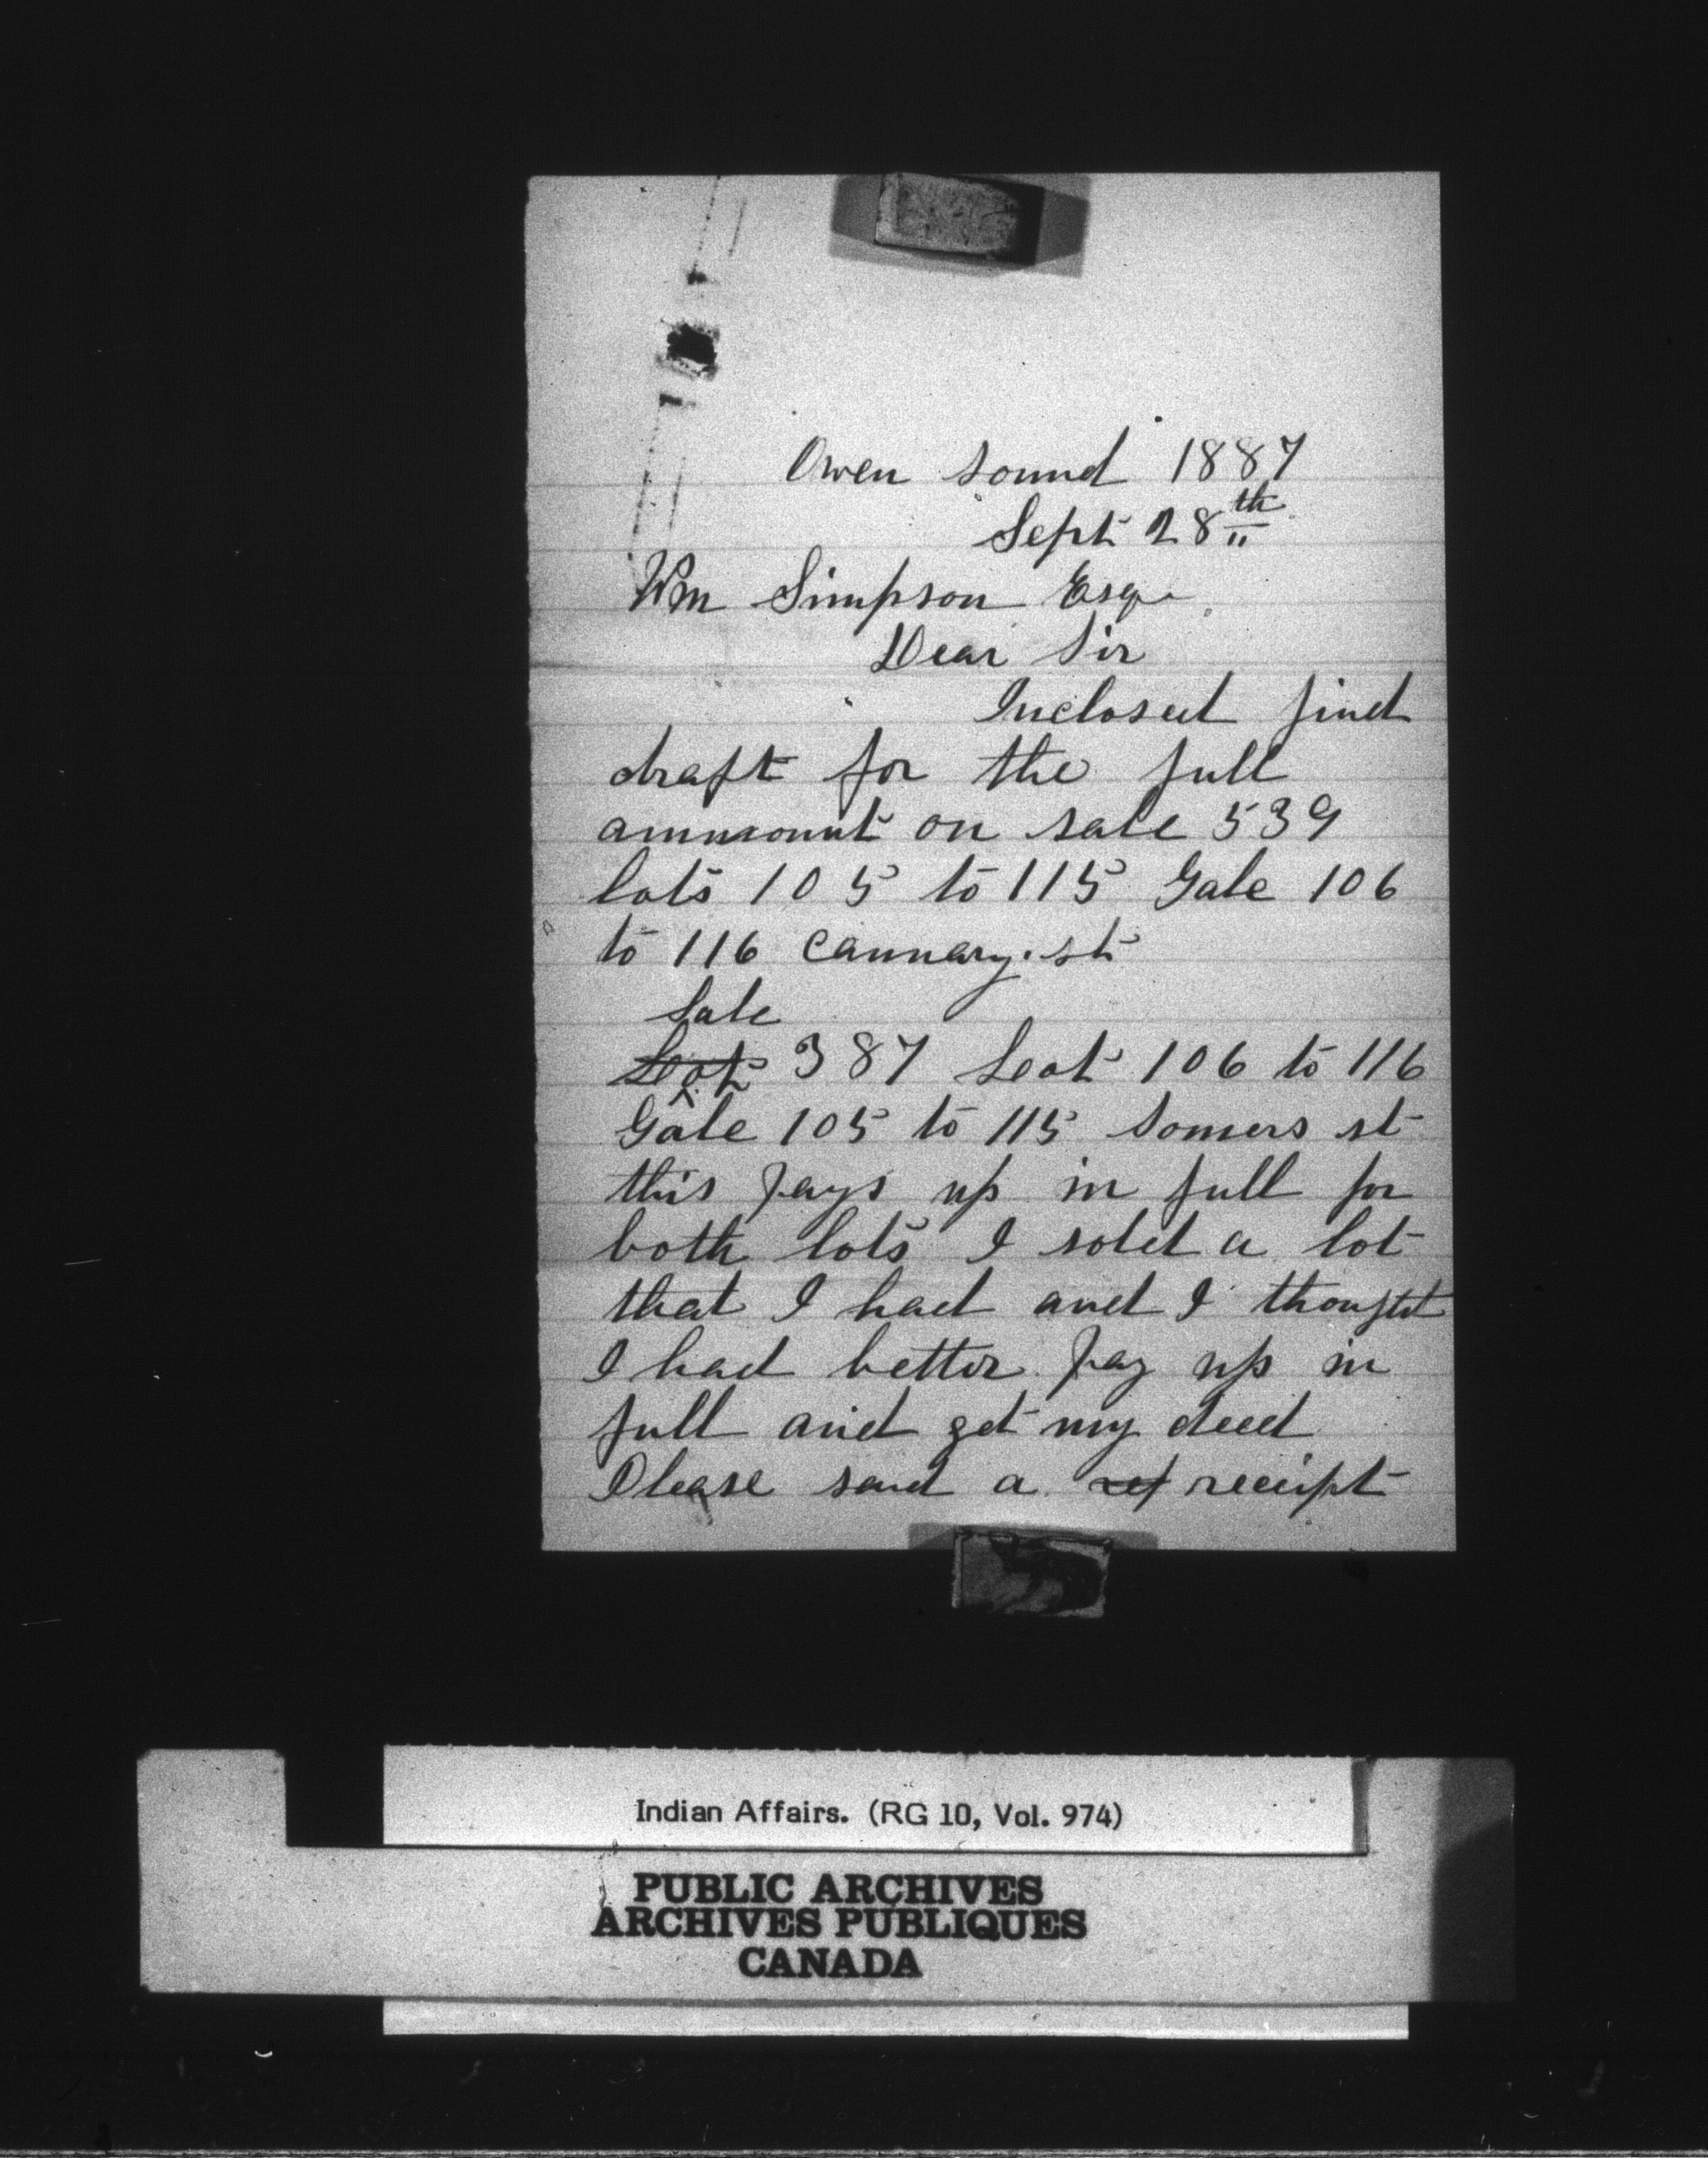 Owen sound 1887
Sept 28th
Wm Simpson Esq
Dear Sir
Inclosed find
draft for the full
ammount on sale 539
lots 105 to 115 Gale 106
to 116 Cannary. st
Sale
Leot 387 Leot 106 to 116
Gale 105 to 115 Somers st
this pays up in full for
both lots I sold a lot
that I had and I thought
I had better pay up in
full and get my deed
Please send a ref receipt
Indian Affairs. (RG 10, Vol. 974)
PUBLIC ARCHIVES
ARCHIVES PUBLIQUES
CANADA